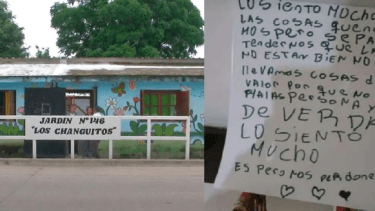 JARDIN N°146
"LOS CHANGUITOS"
LO SIENTO MUCHO
LAS COSAS QUE
MOS PERO
TENDERNOS QUE LA
NO ESTAR BIEN NO
LLEVAMOS COSAS D
VALOR POR QUE NO
MALAS PERSONA Y
DE VERDA
LO SIENTO
MUCHO
ESPERO NOS PERDONE